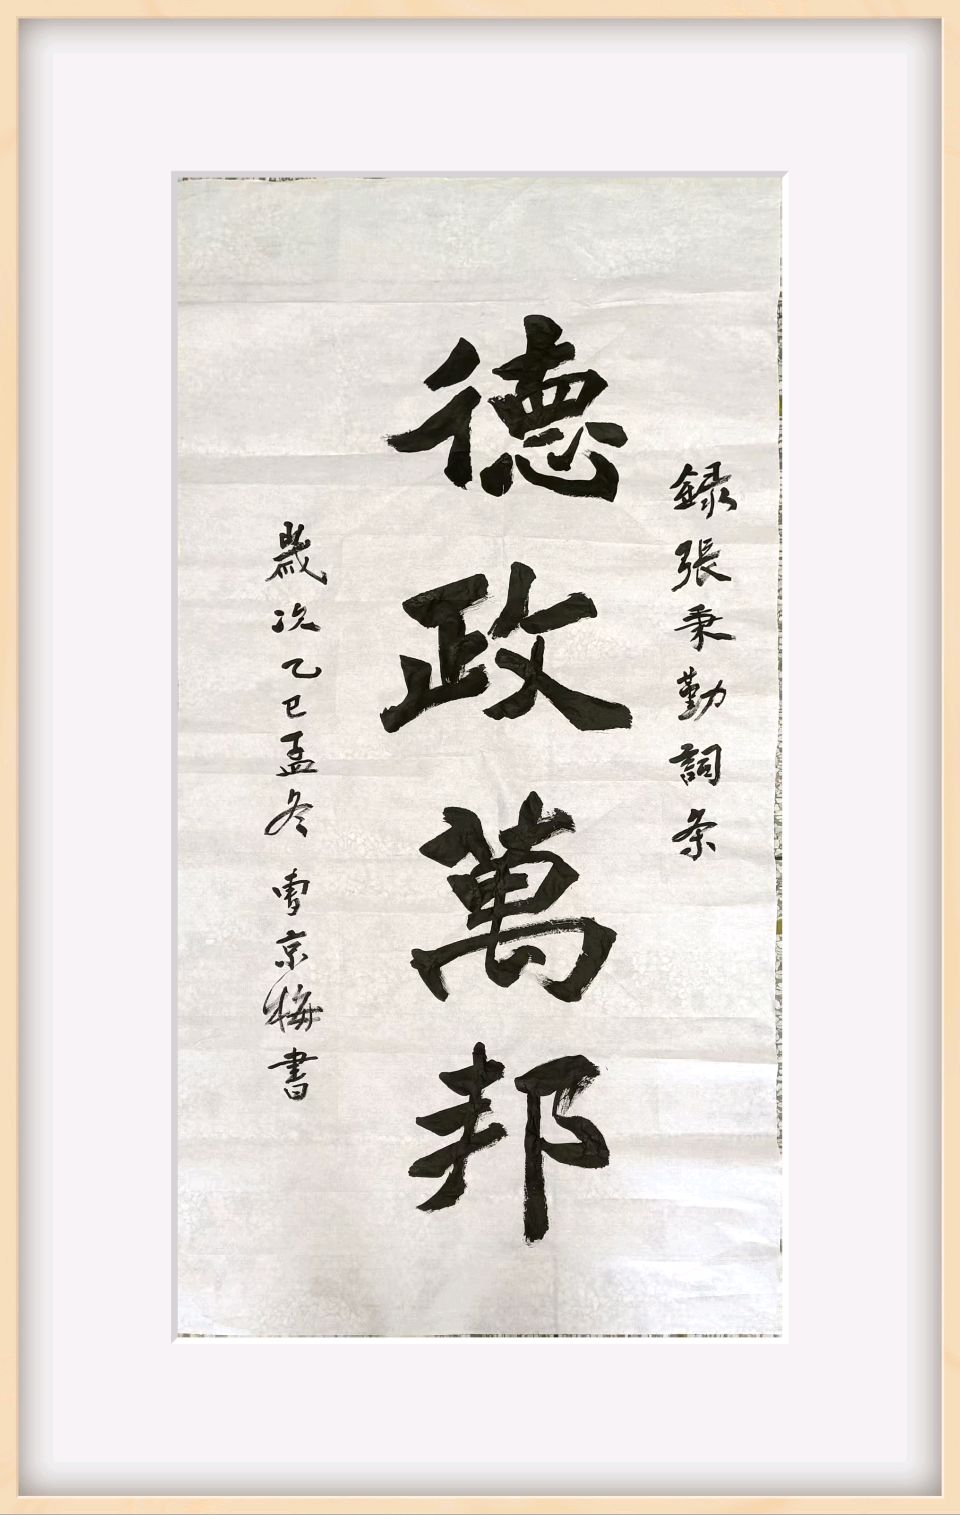 録張秉勤詞条
德政萬邦
歲次乙巳孟冬 京梅書